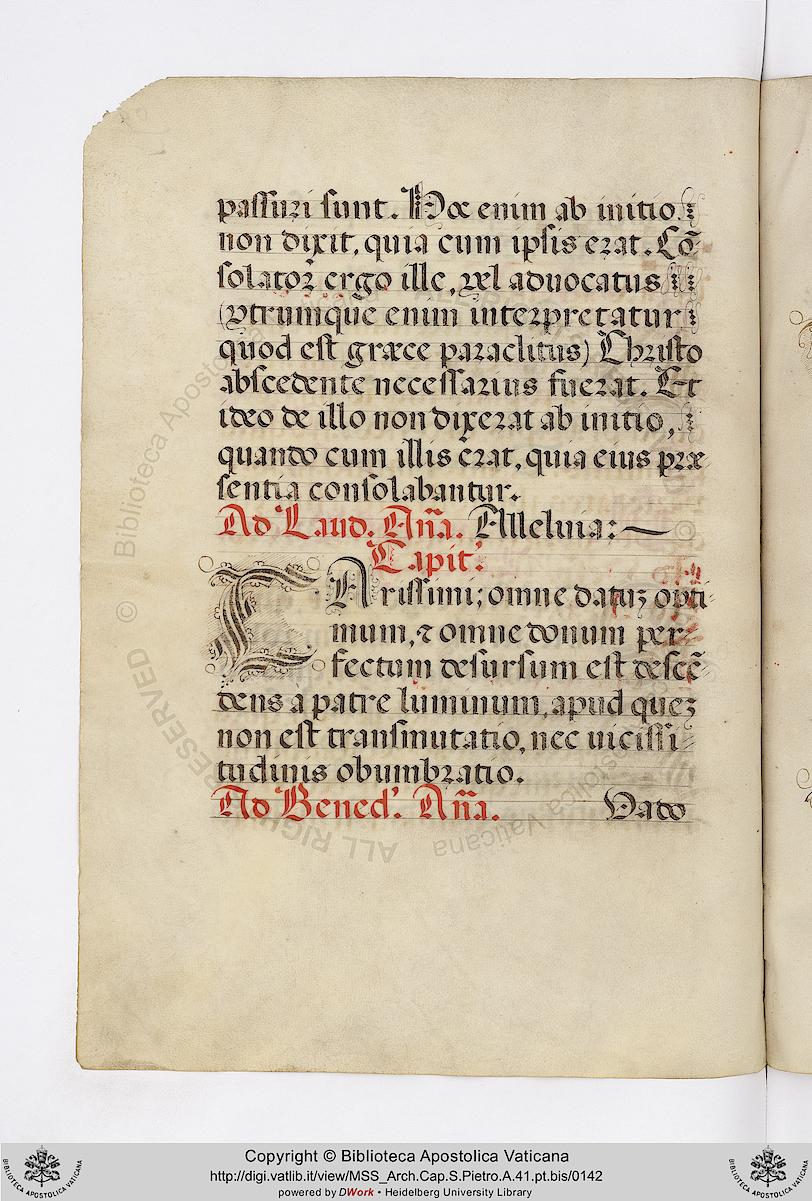 passuri sunt. Hæc enim ab initio
non dixit, quia cum ipsis erat. Cõ-
solator ergo ille, vel advocatus
(vtrumque enim interpretatur
quod est græce paraclitus) Christo
abscedente necessarius fuerat. Et
ideo de illo non dixerat ab initio,
quando cum illis erat, quia eius præ-
sentia consolabantur.
Ad Laud. Añа. Alleluia:
Capit.
CArissimi; omne datuȝ opti-
mum, ⁊ omne donum per-
fectum desursum est descẽ-
dens à patre luminum, apud queȝ
non est transmutatio, nec uicissi-
tudinis obumbratio.
Ad Bened. Aña. Vado
© Biblioteca Apostolica Vaticana
ALL RIGHTS RESERVED
Copyright © Biblioteca Apostolica Vaticana
http://digi.vatlib.it/view/MSS_Arch.Cap.S.Pietro.A.41.pt.bis/0142
powered by DWork • Heidelberg University Library
BIBLIOTECA APOSTOLICA VATICANA
BIBLIOTECA APOSTOLICA VATICANA